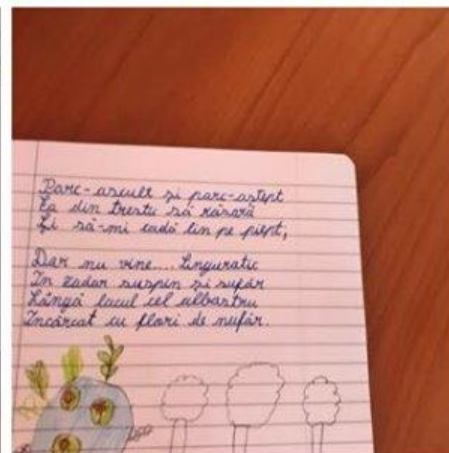 Parc-ascult și parc-aștept
Ea din trestii să răsară
Și să-mi cadă lin pe piept;
Dar nu vine... Singuratic
În zadar suspin și sufăr
Lângă lacul cel albastru
Încărcat cu flori de nufăr.